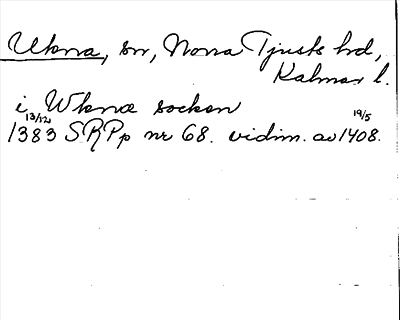 Ukna, sn, Norra Tjusts hd,
Kalmar l.
i Wkna socken
13/12 19/5
1383 SRPp nr 68. vidim. av 1408.